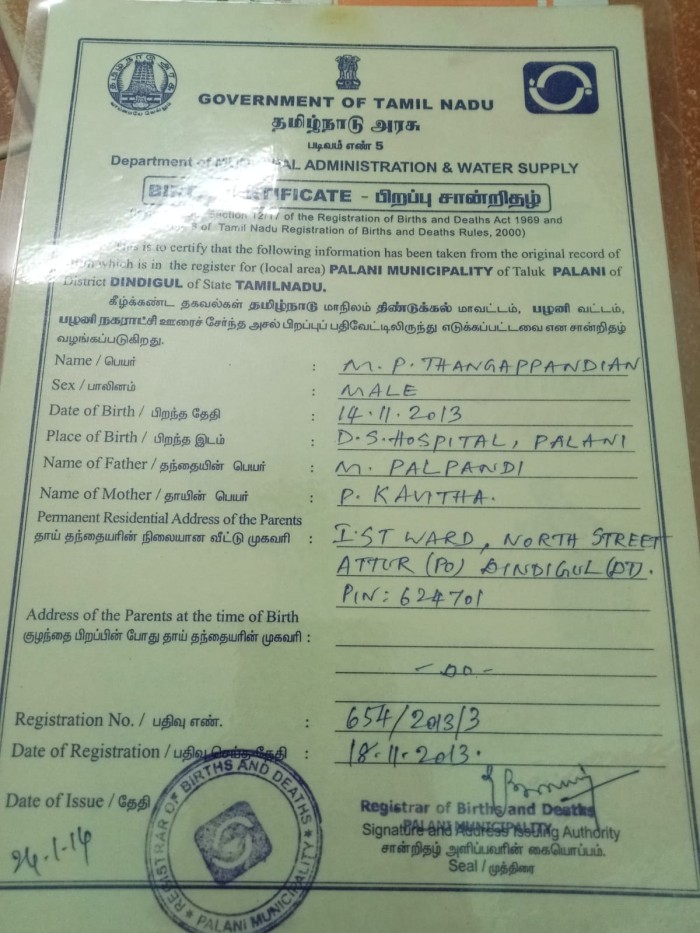 GOVERNMENT OF TAMIL NADU
தமிழ்நாடு அரசு
படிவம் எண் 5
Department of ADMINISTRATION & WATER SUPPLY
CERTIFICATE - பிறப்பு சான்றிதழ்
Section 12/17 of the Registration of Births and Deaths Act 1969 and
of Tamil Nadu Registration of Births and Deaths Rules, 2000)
is to certify that the following information has been taken from the original record of
which is in the register for (local area) PALANI MUNICIPALITY of Taluk PALANI of
District DINDIGUL of State TAMILNADU.
கீழ்க்கண்ட தகவல்கள் தமிழ்நாடு மாநிலம் திண்டுக்கல் மாவட்டம், பழனி வட்டம்,
பழனி நகராட்சி ஊரைச் சேர்ந்த அசல் பிறப்புப் பதிவேட்டிலிருந்து எடுக்கப்பட்டவை என சான்றிதழ்
வழங்கப்படுகிறது.
Name / பெயர் : M. P. THANGAPPANDIAN
Sex / பாலினம் : MALE
Date of Birth / பிறந்த தேதி : 14.11.2013
Place of Birth / பிறந்த இடம் : D.S.HOSPITAL, PALANI
Name of Father / தந்தையின் பெயர் : M. PALPANDI
Name of Mother / தாயின் பெயர் : P. KAVITHA.
Permanent Residential Address of the Parents
தாய் தந்தையரின் நிலையான வீட்டு முகவரி : I.ST WARD, NORTH STREET
ATTUR (PO) DINDIGUL (DT).
PIN: 624701
Address of the Parents at the time of Birth
குழந்தை பிறப்பின் போது தாய் தந்தையரின் முகவரி :
-do-
Registration No. / பதிவு எண். : 654/2013/3
Date of Registration / பதிவு செய்த தேதி : 18.11.2013.
Date of Issue / தேதி
24.1.14
Registrar of Births and Deaths
PALANI MUNICIPALITY
Signature and Address Issuing Authority
சான்றிதழ் அளிப்பவரின் கையொப்பம்.
Seal / முத்திரை
REGISTRAR OF BIRTHS AND DEATHS
PALANI MUNICIPALITY